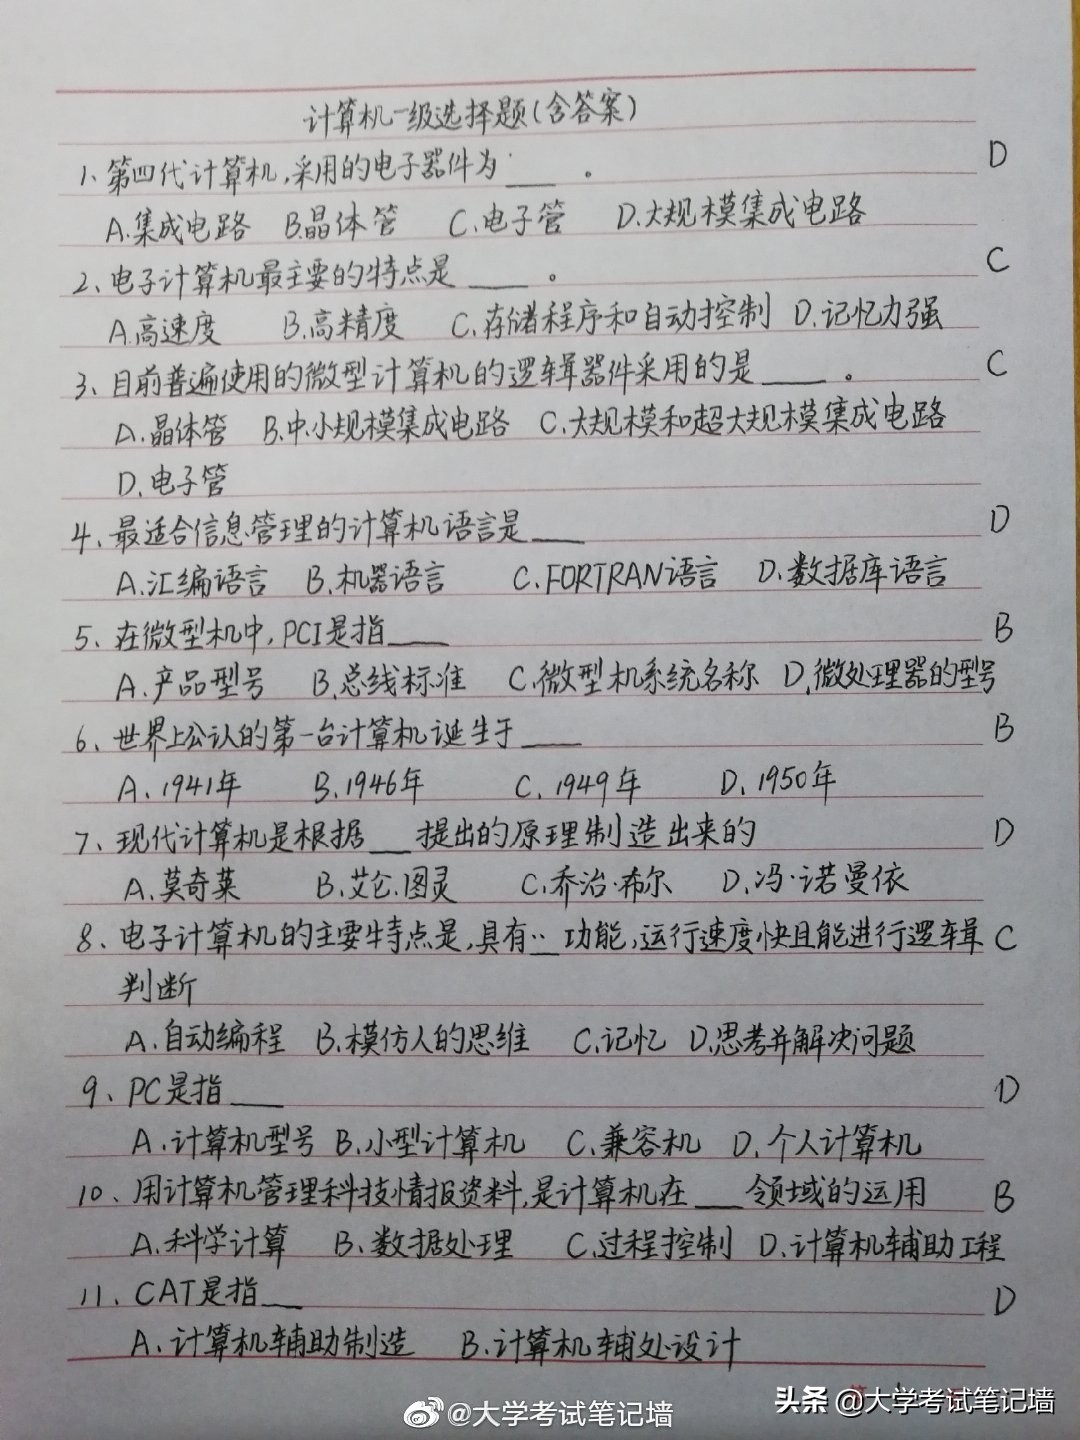 计算机一级选择题(含答案)
1、第四代计算机,采用的电子器件为___。 D
A.集成电路 B.晶体管 C.电子管 D.大规模集成电路
2、电子计算机最主要的特点是____。 C
A.高速度 B.高精度 C.存储程序和自动控制 D.记忆力强
3、目前普遍使用的微型计算机的逻辑器件采用的是____。 C
A.晶体管 B.中.小规模集成电路 C.大规模和超大规模集成电路
D.电子管
4、最适合信息管理的计算机语言是___ D
A.汇编语言 B.机器语言 C.FORTRAN语言 D.数据库语言
5、在微型机中,PCI是指____ B
A.产品型号 B.总线标准 C.微型机系统名称 D.微处理器的型号
6、世界上公认的第一台计算机诞生于____ B
A.1941年 B.1946年 C.1949年 D.1950年
7、现代计算机是根据___提出的原理制造出来的 D
A.莫奇莱 B.艾仑.图灵 C.乔治·希尔 D.冯·诺曼依
8、电子计算机的主要特点是,具有__功能,运行速度快且能进行逻辑 C
判断
A.自动编程 B.模仿人的思维 C.记忆 D.思考并解决问题
9、PC是指___ D
A.计算机型号 B.小型计算机 C.兼容机 D.个人计算机
10、用计算机管理科技情报资料,是计算机在___领域的运用 B
A.科学计算 B.数据处理 C.过程控制 D.计算机辅助工程
11、CAT是指___ D
A.计算机辅助制造 B.计算机辅处设计
@大学考试笔记墙
头条 @大学考试笔记墙